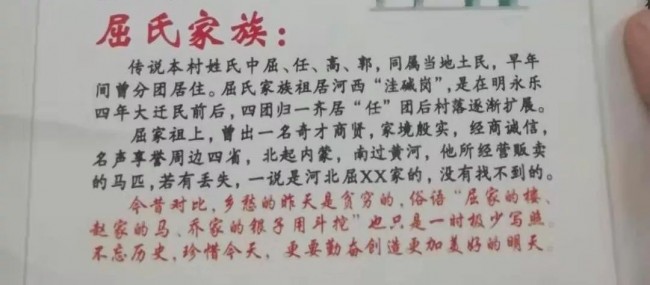 屈氏家族：
传说本村姓氏中屈、任、高、郭，同属当地土民，早年
间曾分团居住。屈氏家族祖居河西“洼碱岗”，是在明永乐
四年大迁民前后，四团归一齐居“任”团后村落逐渐扩展。
屈家祖上，曾出一名奇才商贤，家境殷实，经商诚信，
名声享誉周边四省，北起内蒙，南过黄河，他所经营贩卖
的马匹，若有丢失，一说是河北屈XX家的，没有找不到的。
今昔对比，乡愁的昨天是贫穷的，俗语“屈家的楼、
赵家的马、乔家的银子用斗挖”也只是一时极少写照。
不忘历史，珍惜今天，更要勤奋创造更加美好的明天